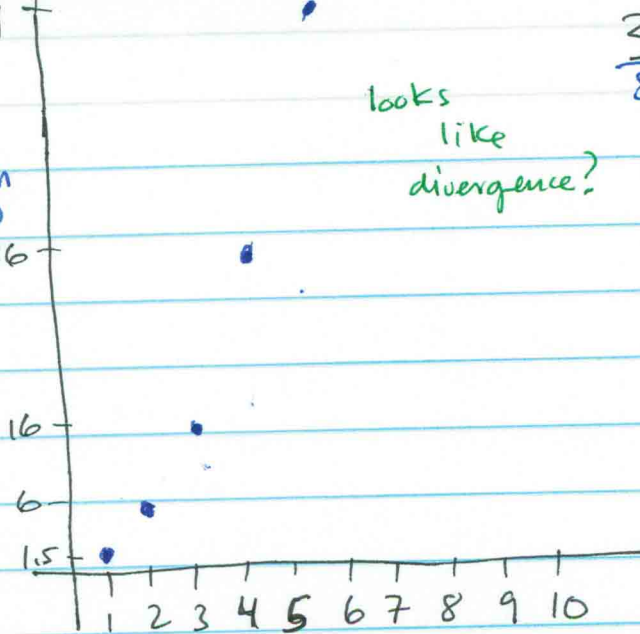 looks
like
divergence?
6
16
6
1.5
1 2 3 4 5 6 7 8 9 10